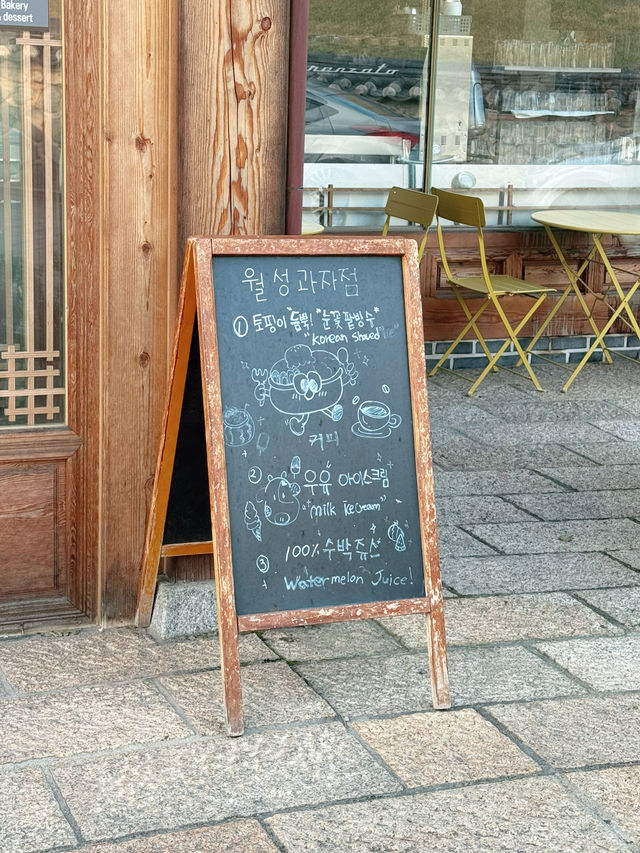 Bakery
& dessert
월성과자점
① 토핑이 듬뿍! "눈꽃팥빙수"
"Korean shaved ice"
커피
② 우유 아이스크림
"milk icecream"
③ 100% 수박쥬스
Watermelon Juice!